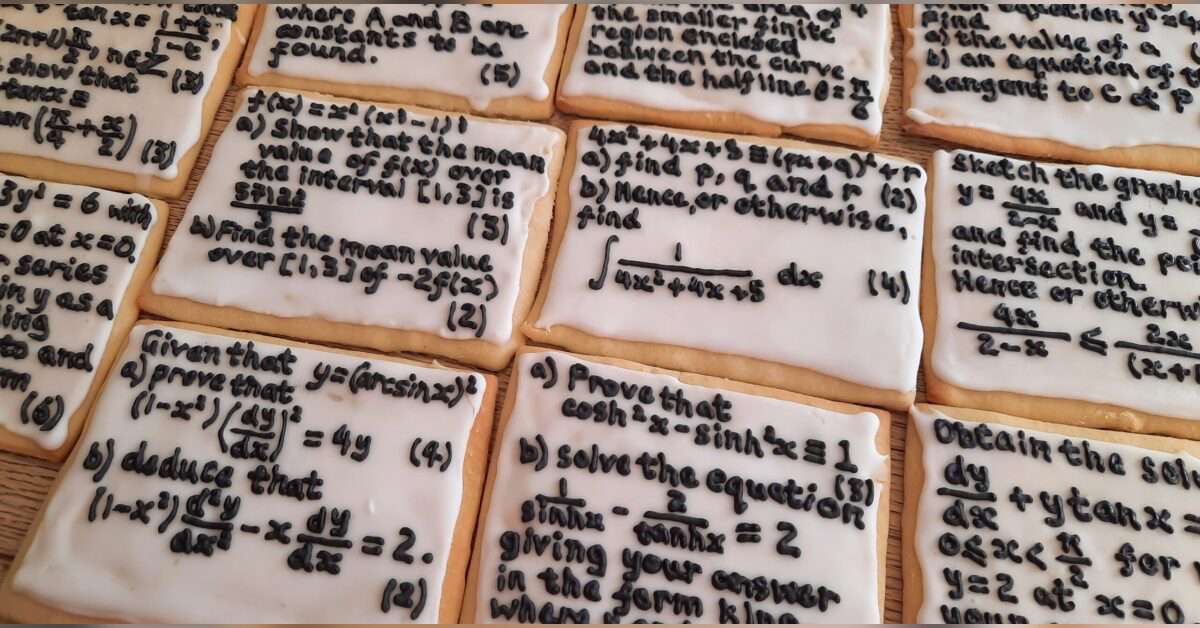 tan x = 1+t / 1-t,
(2n+1)π/2, n∈ℤ
show that (3)
tan x ≡
(π/4 + x/2) (3)
where A and B are
constants to be
found.
(5)
the smaller finite
region enclosed
between the curve
and the half line θ = π/6
find
a) the value of a
b) an equation of
tangent to C at P
= 6 with
=0 at x=0.
series
in y as a
to and
(6)
a) Show that the mean
value of f(x) over
the interval [1,3] is
(3)
b) Find the mean value
over [1,3] of -2f(x)
(2)
4x² + 4x + 5 ≡ (px+q)² + r
a) find p, q and r (2)
b) Hence, or otherwise,
find
∫ 1 / 4x²+4x+5 dx (4)
Sketch the graphs
y = 4x / 2-x and y =
and find the
intersection.
Hence or
4x / 2-x ≤ 2x /
Given that y=(arcsinx)²
a) prove that
(1-x²)(dy/dx)² = 4y (4)
b) deduce that
(1-x²) d²y/dx² - x dy/dx = 2.
(2)
a) Prove that
cosh²x - sinh²x ≡ 1
(3)
b) solve the equation
1 / sinhx - 2 / tanhx = 2
giving your answer
in the form klna
where
Obtain the
dy/dx + y tan x =
0≤x<π/2 for
y=2 at x=0
your